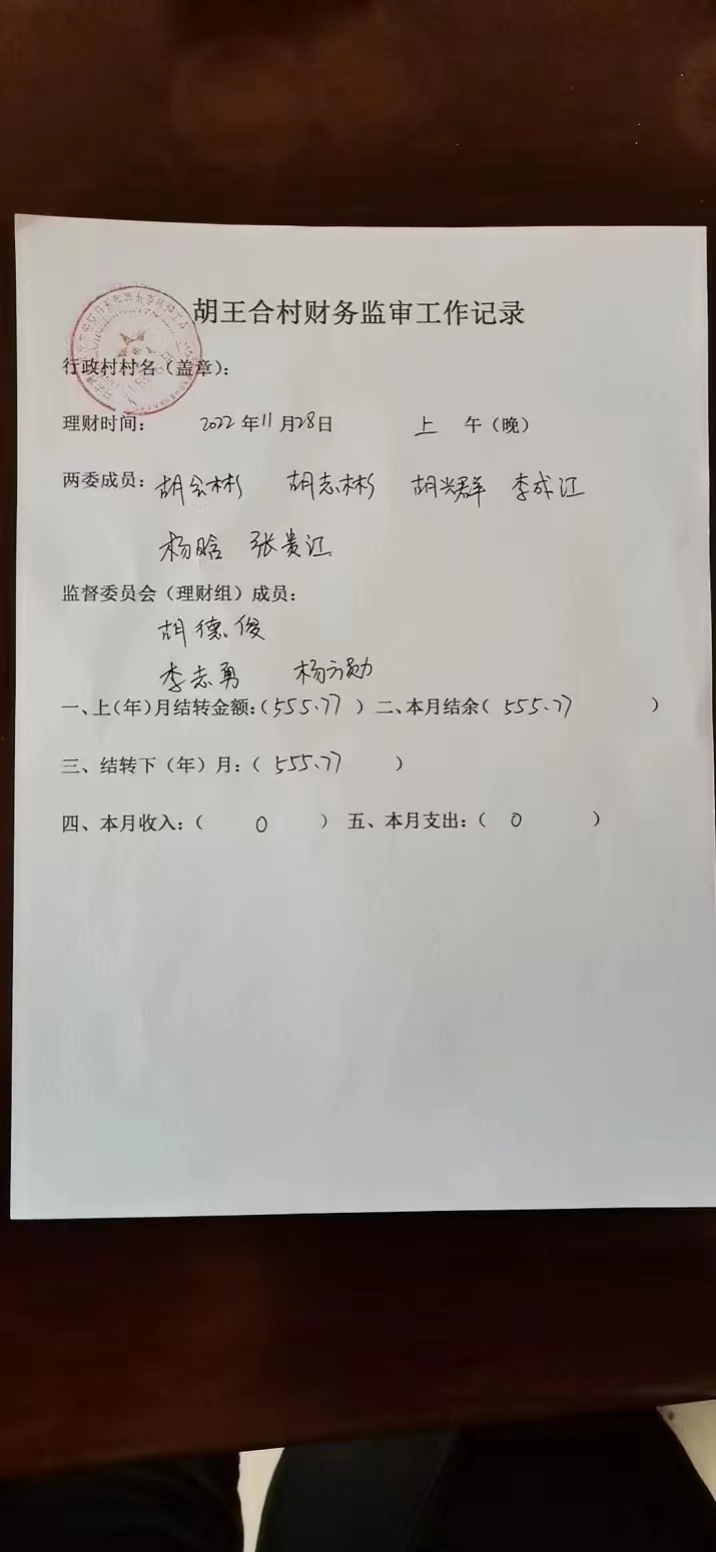 胡王合村财务监审工作记录
行政村村名（盖章）：
理财时间： 2022年11月28日 上 午（晚）
两委成员：胡会彬 胡志彬 胡兴群 李成江
杨晗 张贵江
监督委员会（理财组）成员：
胡德俊
李志勇 杨方勋
一、上（年）月结转金额：（555.77 ）二、本月结余（ 555.77 ）
三、结转下（年）月：（ 555.77 ）
四、本月收入：（ 0 ） 五、本月支出：（ 0 ）